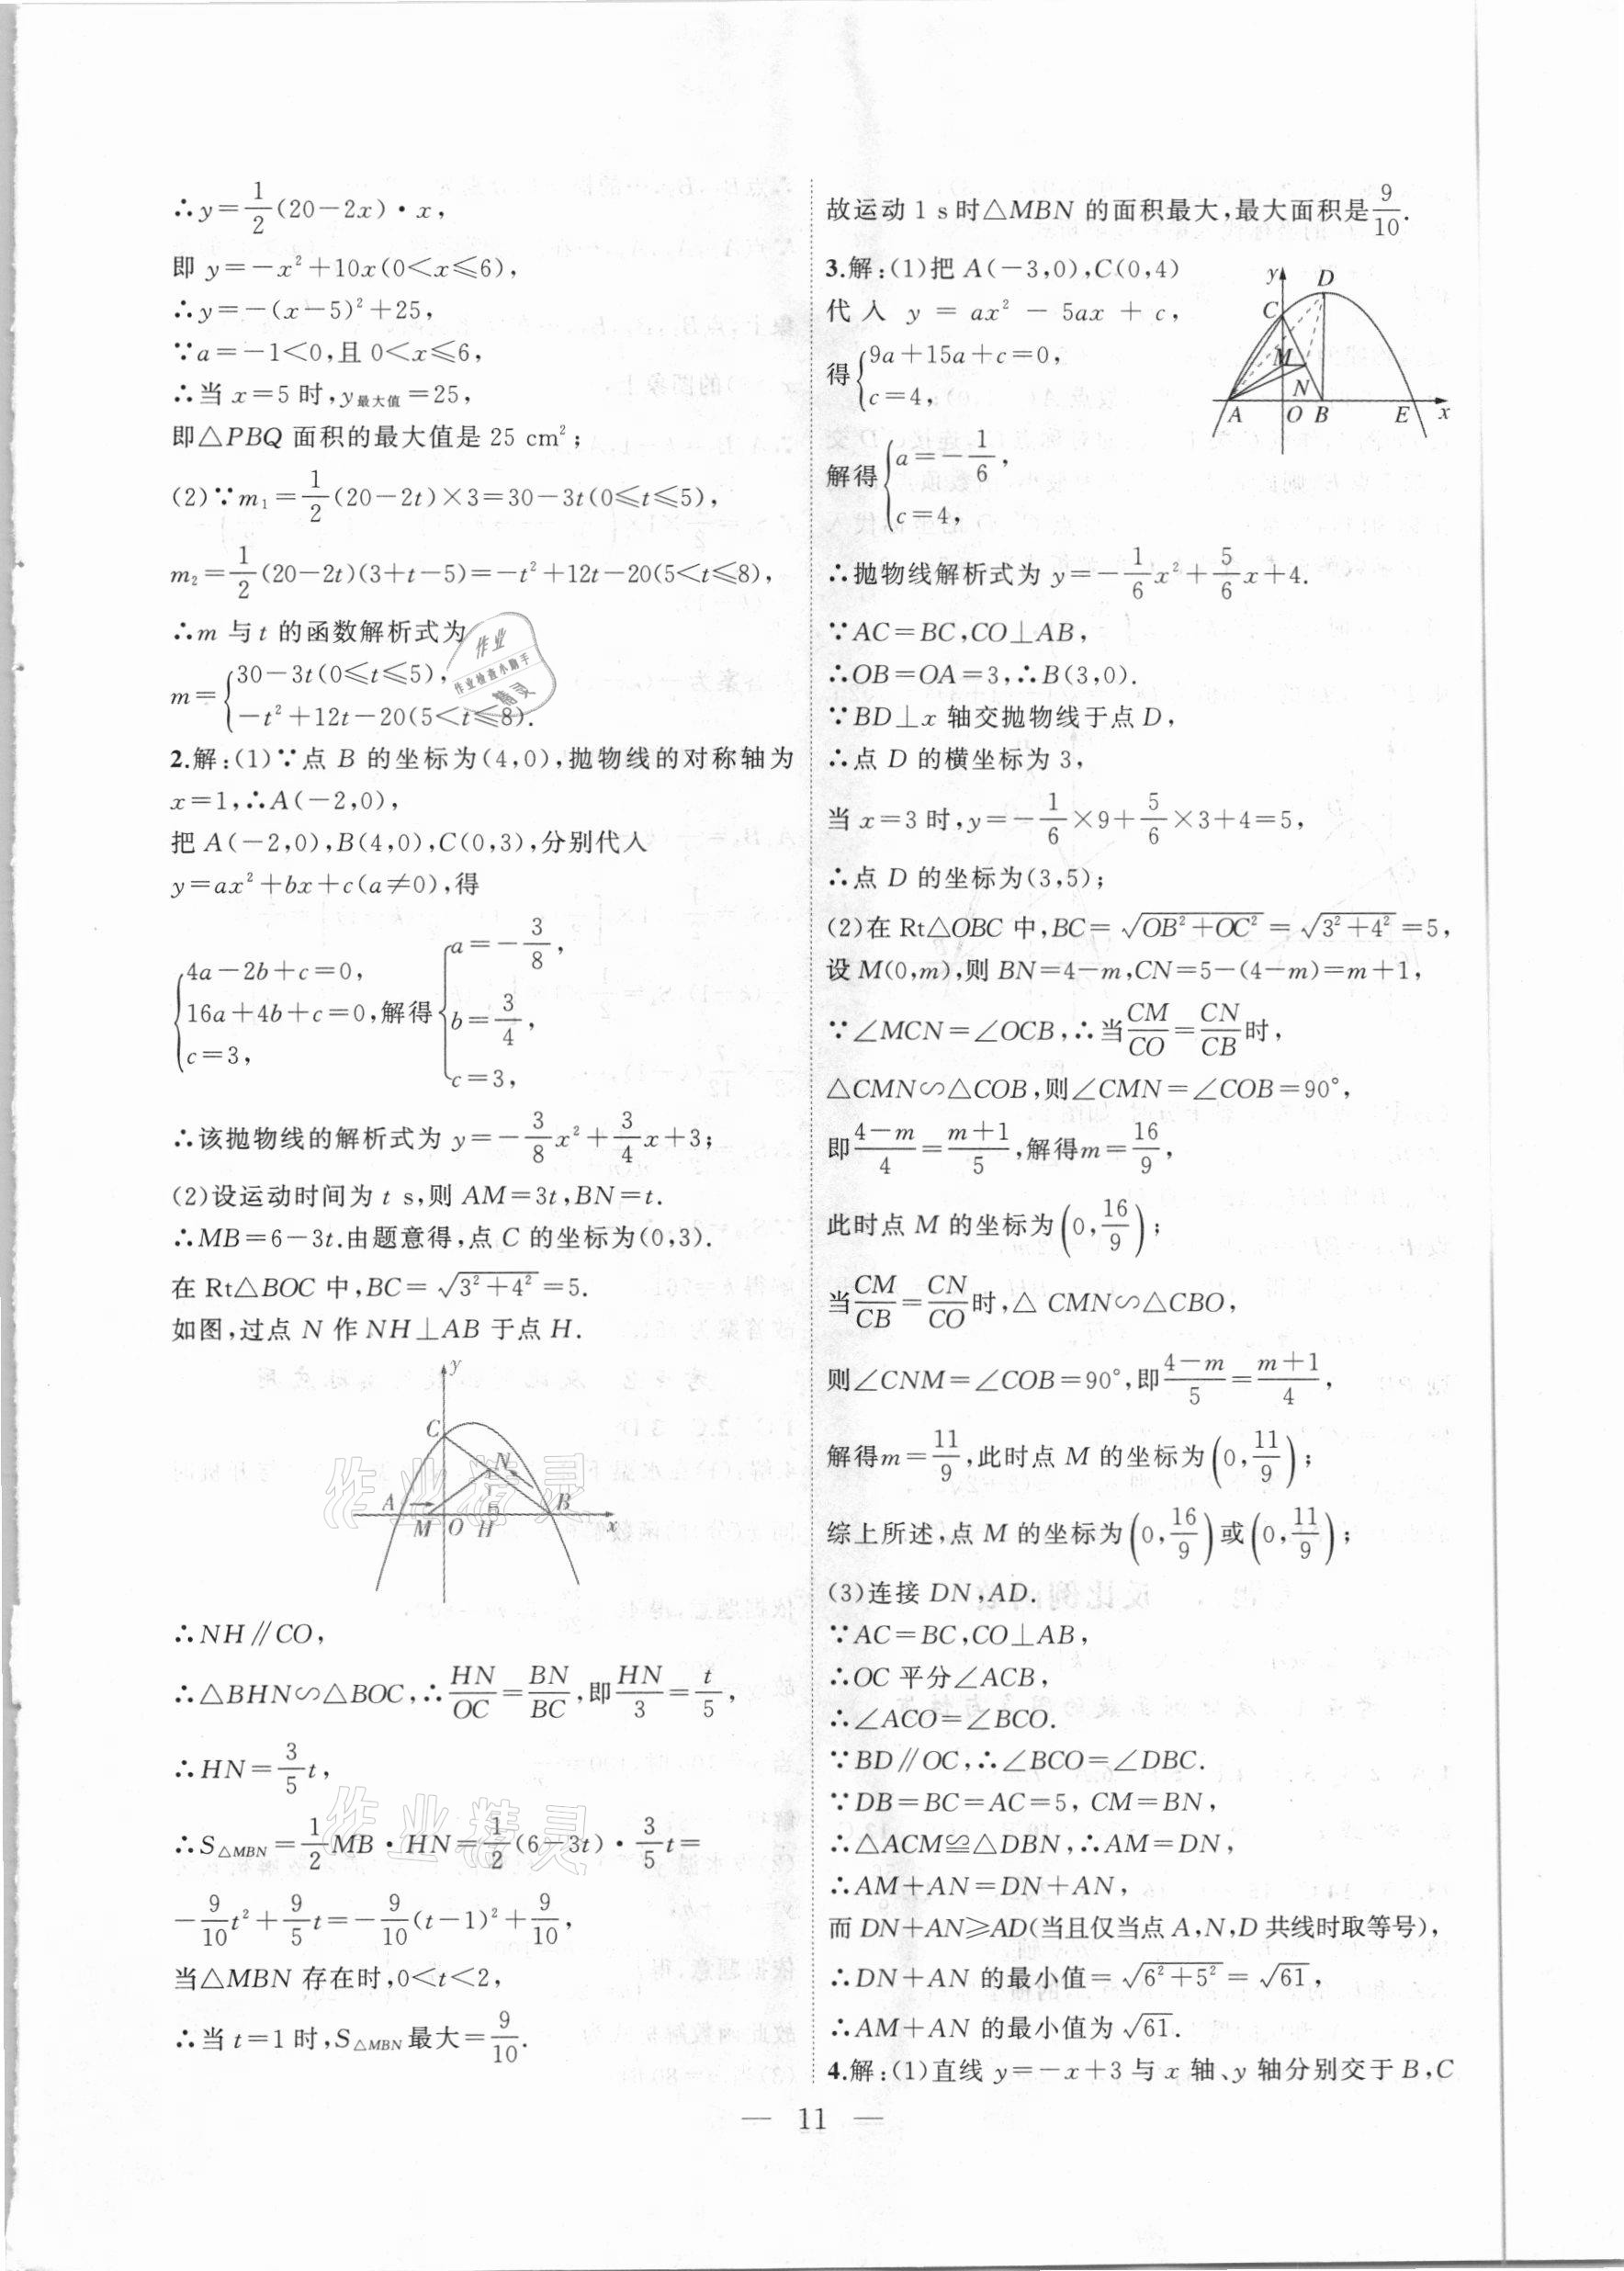 ∴y=1/2(20-2x)·x,
即 y=-x²+10x(0<x≤6),
∴y=-(x-5)²+25,
∵a=-1<0,且 0<x≤6,
∴当 x=5 时,y最大值=25,
即△PBQ 面积的最大值是 25 cm²;
(2)∵m₁=1/2(20-2t)×3=30-3t(0≤t≤5),
m₂=1/2(20-2t)(3+t-5)=-t²+12t-20(5<t≤8),
∴m 与 t 的函数解析式为
m={30-3t(0≤t≤5),
-t²+12t-20(5<t≤8).
作业
作业检查小助手
精灵
2.解:(1)∵点 B 的坐标为(4,0),抛物线的对称轴为
x=1,∴A(-2,0),
把 A(-2,0),B(4,0),C(0,3),分别代入
y=ax²+bx+c(a≠0),得
{4a-2b+c=0, 16a+4b+c=0, c=3, 解得{a=-3/8, b=3/4, c=3,
∴该抛物线的解析式为 y=-3/8x²+3/4x+3;
(2)设运动时间为 t s,则 AM=3t,BN=t.
∴MB=6-3t.由题意得,点 C 的坐标为(0,3).
在 Rt△BOC 中,BC=√(3²+4²)=5.
如图,过点 N 作 NH⊥AB 于点 H.
y
C
N
A
B
M O H
x
作业精灵
∴NH∥CO,
∴△BHN∽△BOC,∴HN/OC=BN/BC,即HN/3=t/5,
∴HN=3/5t,
作业精灵
∴S△MBN=1/2MB·HN=1/2(6-3t)·3/5t=
-9/10t²+9/5t=-9/10(t-1)²+9/10,
当△MBN 存在时,0<t<2,
∴当 t=1 时,S△MBN最大=9/10.
故运动 1 s时△MBN 的面积最大,最大面积是9/10.
3.解:(1)把 A(-3,0),C(0,4)
代入 y = ax² - 5ax + c,
得{9a+15a+c=0,
c=4,
y D
C
M
N
A O B E x
解得{a=-1/6,
c=4,
∴抛物线解析式为 y=-1/6x²+5/6x+4.
∵AC=BC,CO⊥AB,
∴OB=OA=3,∴B(3,0).
∵BD⊥x 轴交抛物线于点 D,
∴点 D 的横坐标为 3,
当 x=3 时,y=-1/6×9+5/6×3+4=5,
∴点 D 的坐标为(3,5);
(2)在 Rt△OBC 中,BC=√(OB²+OC²)=√(3²+4²)=5,
设 M(0,m),则 BN=4-m,CN=5-(4-m)=m+1,
∵∠MCN=∠OCB,∴当CM/CO=CN/CB时,
△CMN∽△COB,则∠CMN=∠COB=90°,
即(4-m)/4=(m+1)/5,解得m=16/9,
此时点 M 的坐标为(0,16/9);
当CM/CB=CN/CO时,△CMN∽△CBO,
则∠CNM=∠COB=90°,即(4-m)/5=(m+1)/4,
解得m=11/9,此时点 M 的坐标为(0,11/9);
综上所述,点 M 的坐标为(0,16/9)或(0,11/9);
(3)连接 DN,AD.
∵AC=BC,CO⊥AB,
∴OC 平分∠ACB,
∴∠ACO=∠BCO.
∵BD∥OC,∴∠BCO=∠DBC.
∵DB=BC=AC=5, CM=BN,
∴△ACM≌△DBN,∴AM=DN,
∴AM+AN=DN+AN,
而 DN+AN≥AD(当且仅当点 A,N,D 共线时取等号),
∴DN+AN 的最小值=√(6²+5²)=√61,
∴AM+AN 的最小值为√61.
4.解:(1)直线 y=-x+3 与 x 轴、y 轴分别交于 B,C
— 11 —